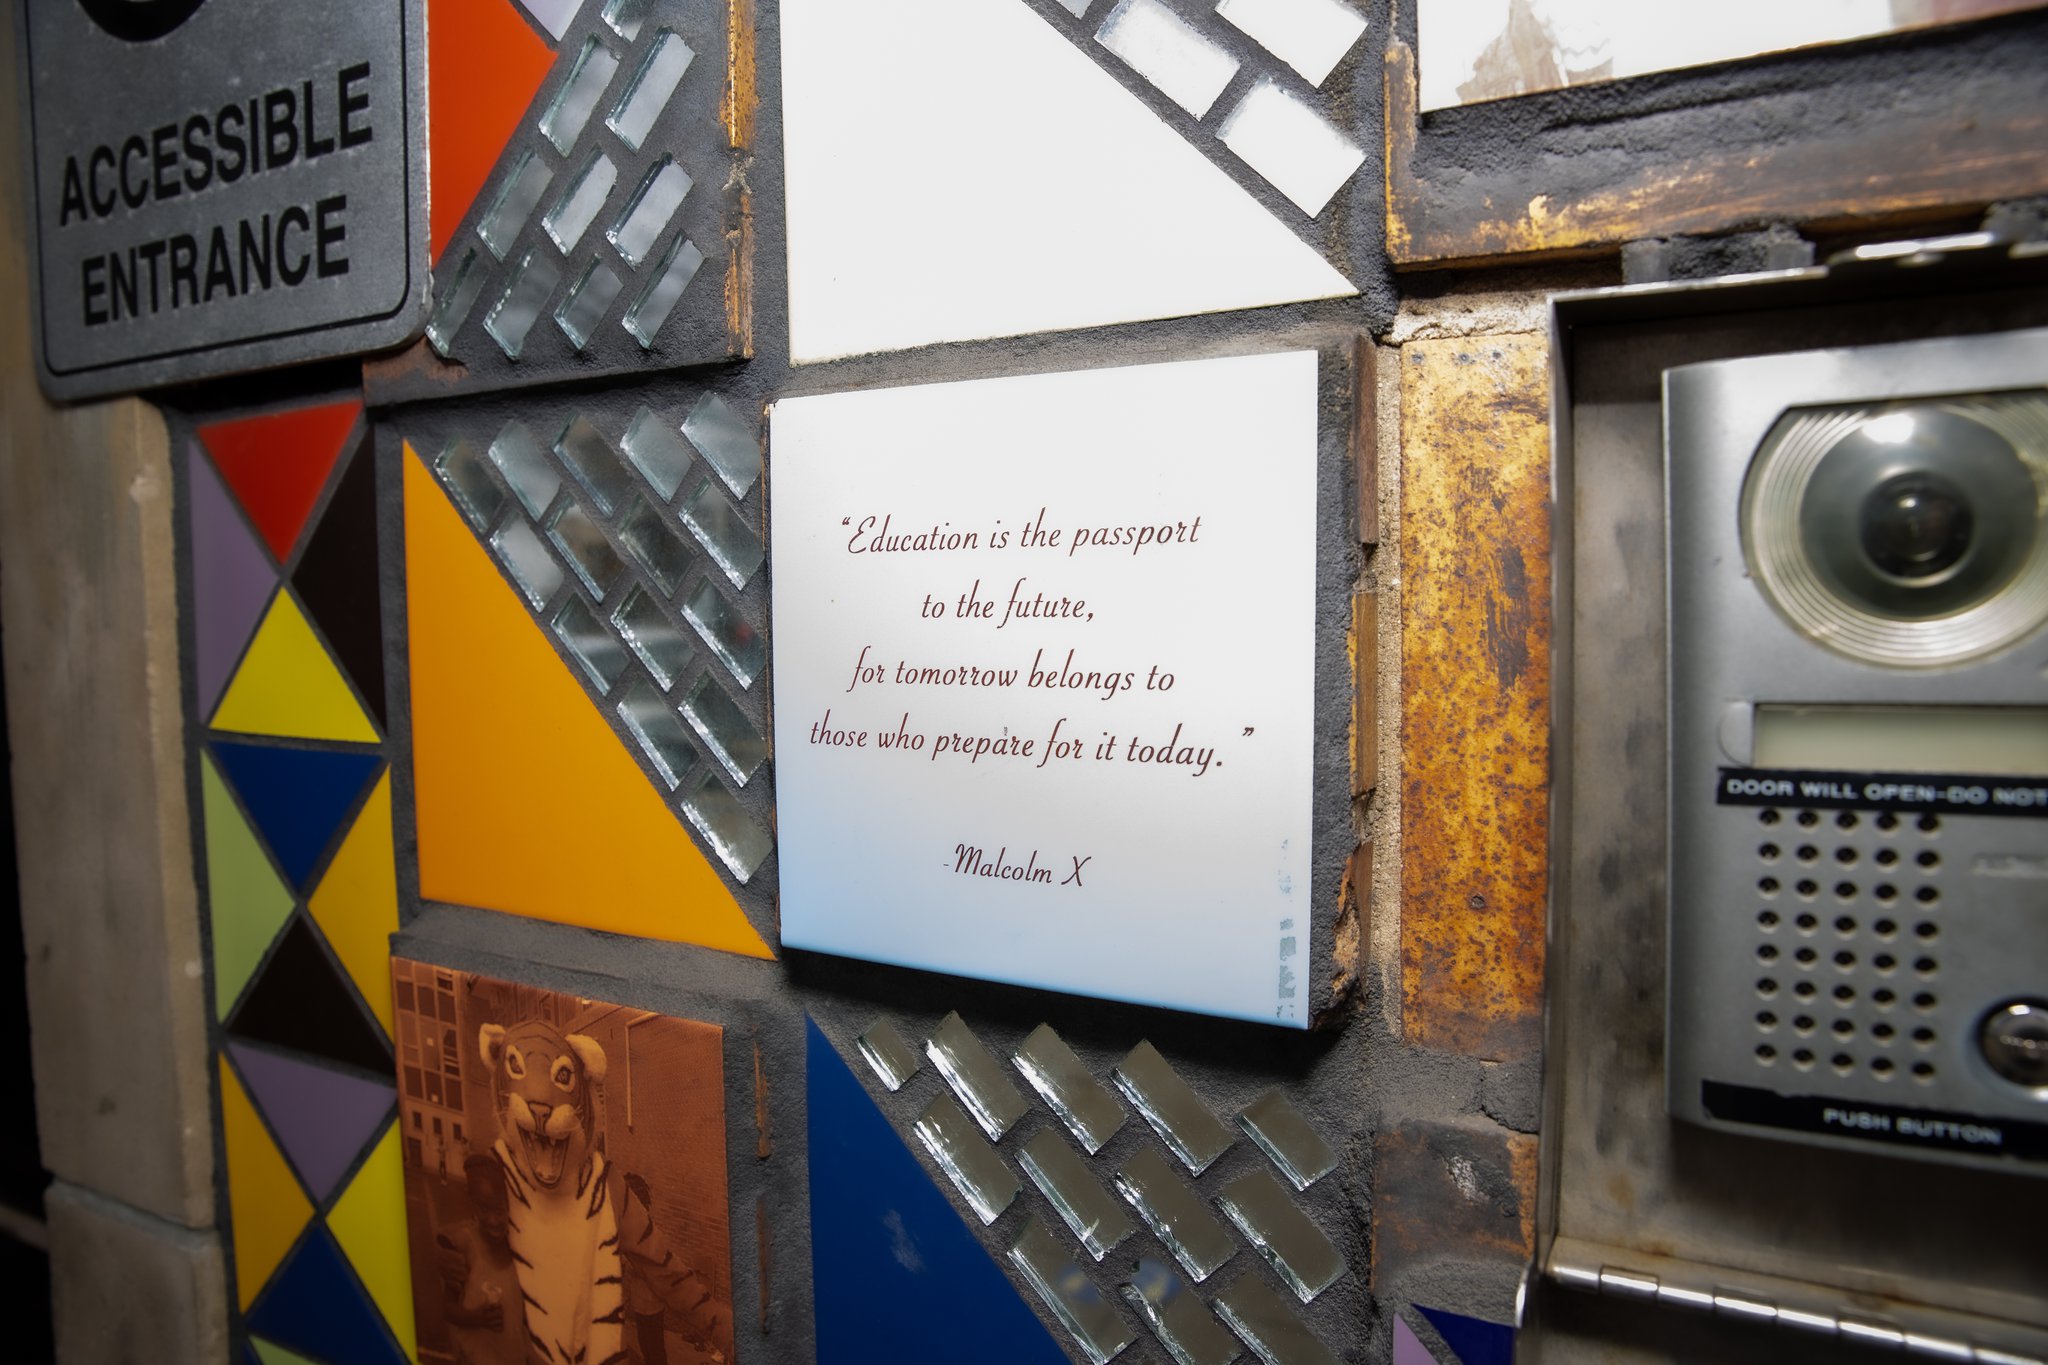 ACCESSIBLE
ENTRANCE
“Education is the passport
to the future,
for tomorrow belongs to
those who prepare for it today.”
-Malcolm X
DOOR WILL OPEN-DO NOT
PUSH BUTTON